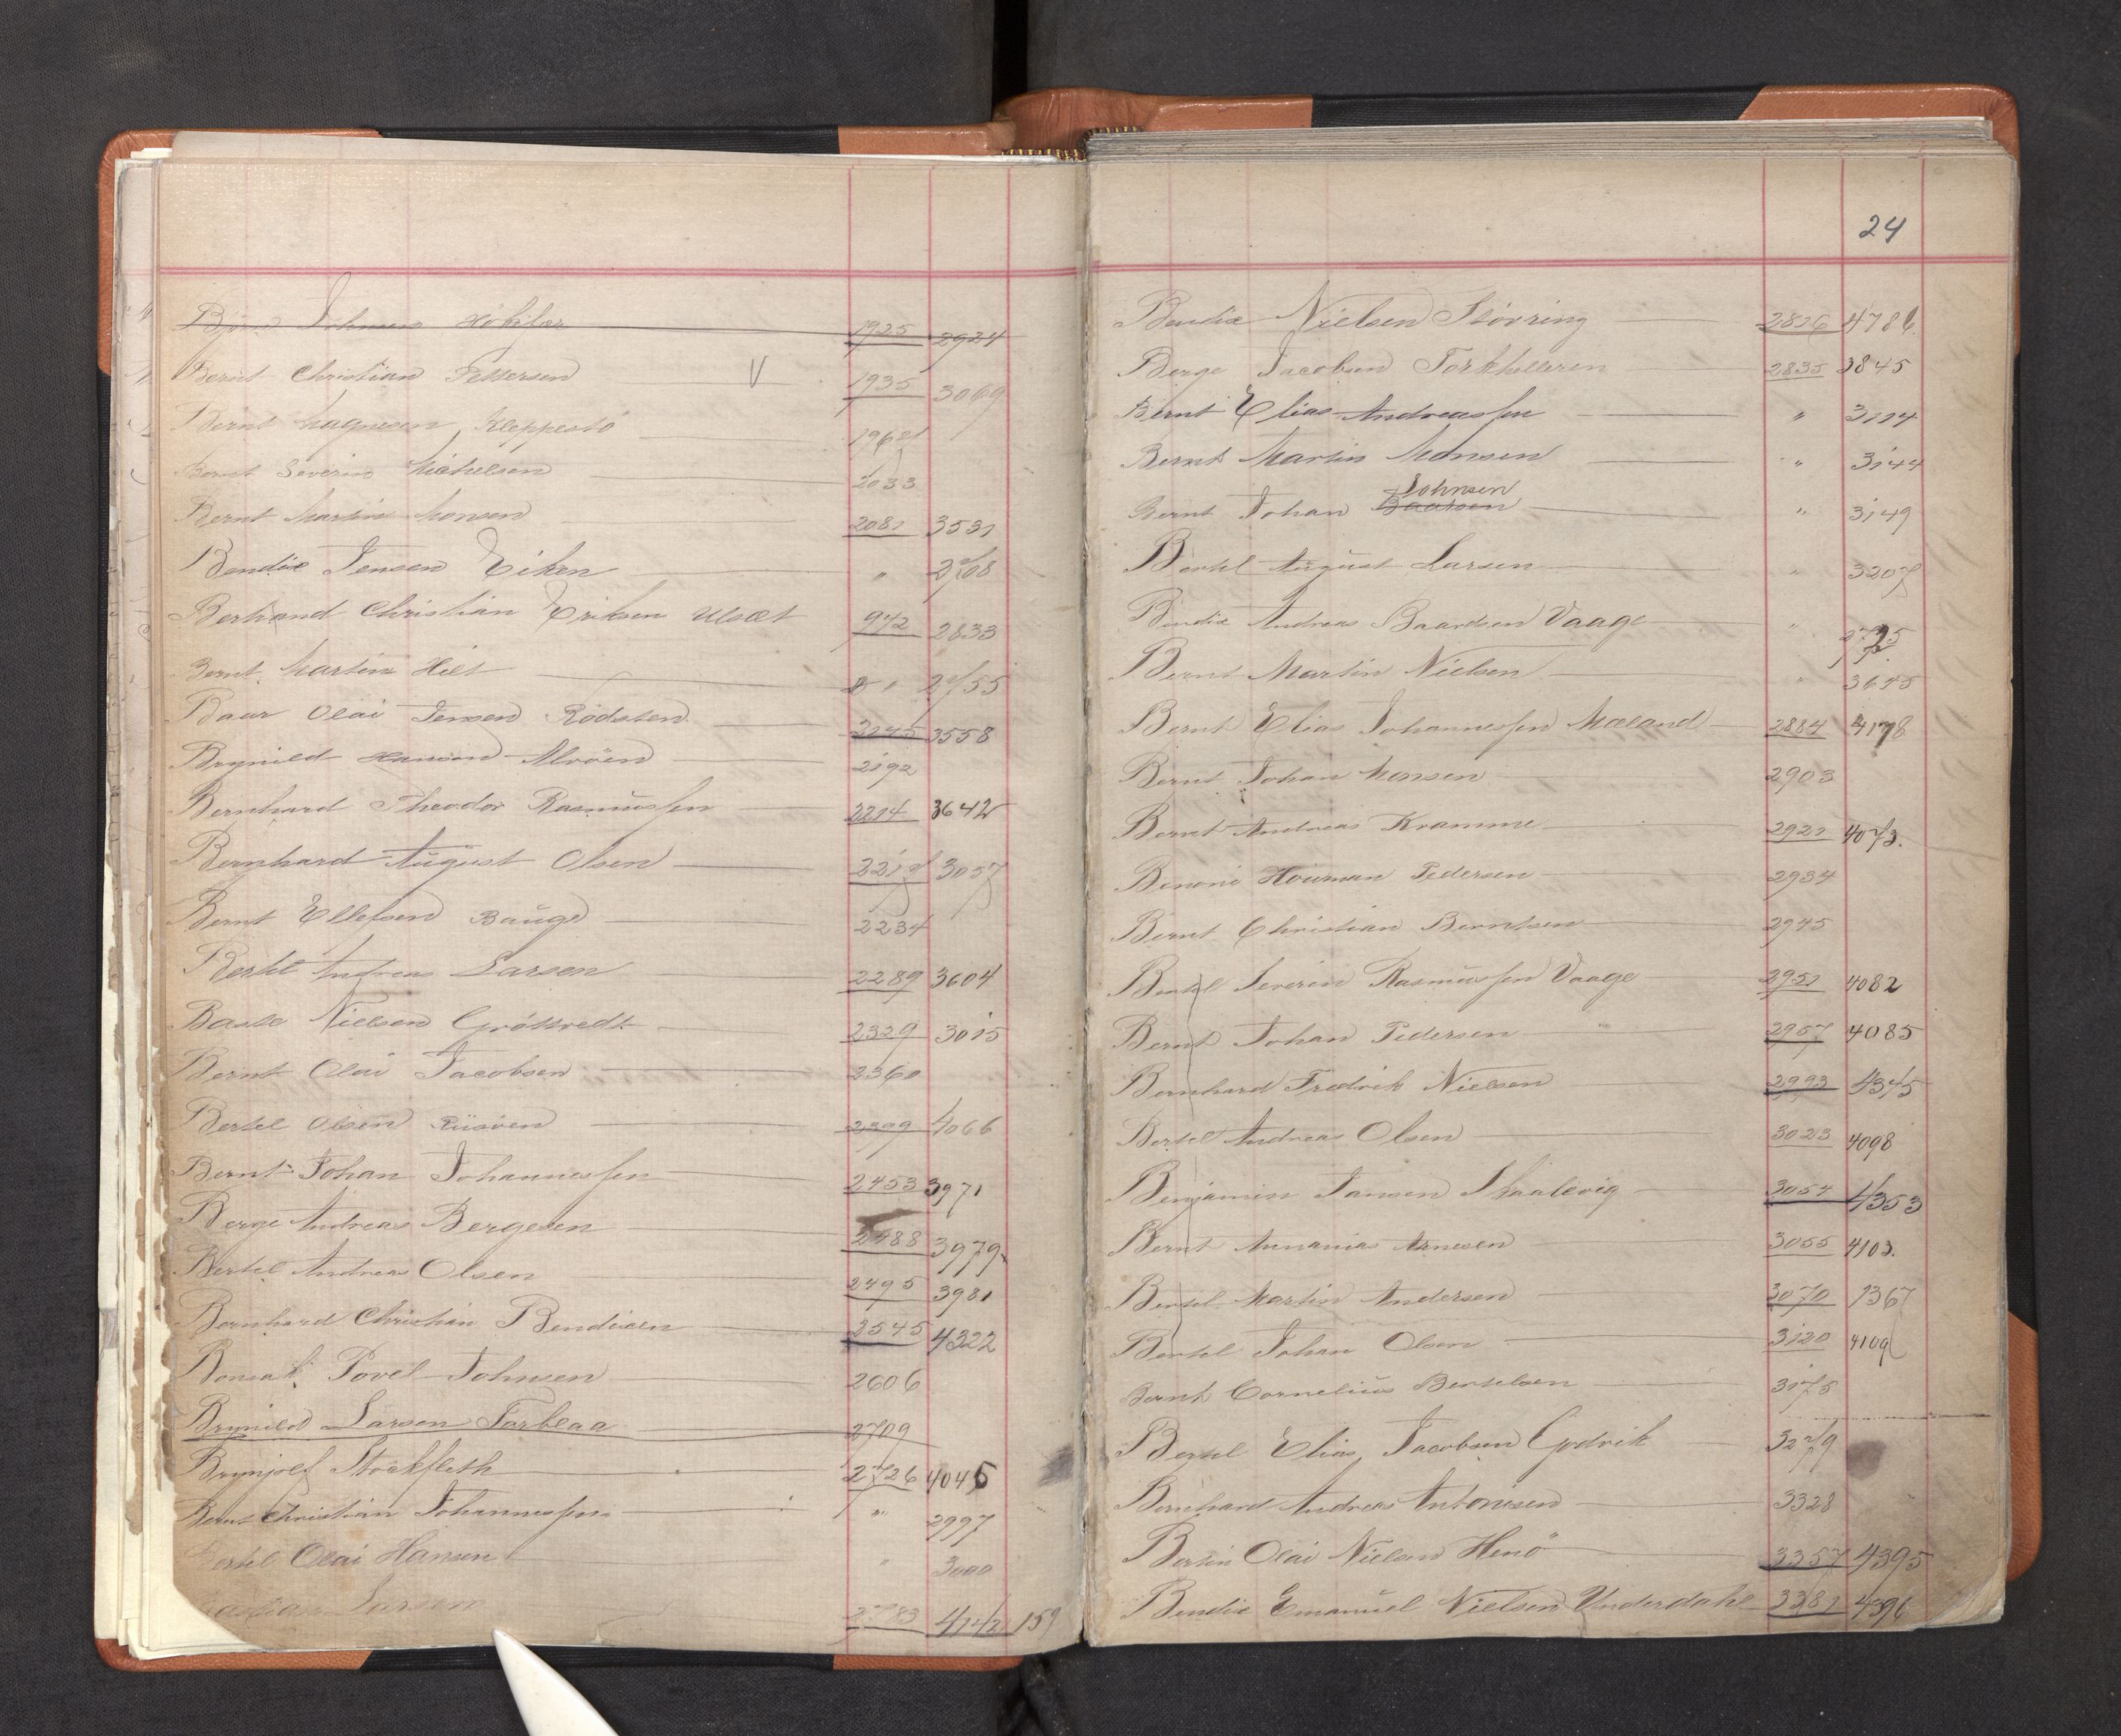 Johnsen 1925 2924
Bernt Christian Pettersen V 1935 3069
Bernt Magnesen Kleppestö 1967
Bernt Severin Michelsen 2033
Bernt Martin Monsen 2081 3531
Bendix Jensen Eiken " 2708
Bertrand Christian Eriksen Ulsæt 942 2833
Bernt Martin Hilt " 2755
Baar Olai Jensen Rödsten 3558
Brynild Hansen Alvöen 2192
Bernhard Theodor Rasmussen 2214 3642
Bernhard August Olsen 2217 3057
Bernt Ellefsen Bauge 2234
Bertel Andreas Larsen 2289 3604
Nielsen 2329 3015
Bernt Olai Jacobsen 2360
Bertel Olsen 2399 4066
Bernt Johan Johannessen 2453 3971
Berge Andreas Bergesen 2488 3979
Bertel Andreas Olsen 2495 3981
Bernhard Christian Bendixen 2545 4322
Povel Johnsen 2606
Brynild Larsen 2709
Brynjolf Stockfleth 2726 4045
Bernt Christian Johannessen " 2997
Bertel Olai Hansen " 3000
Larsen 2783 4142 159
24
Bendix Nielsen Stövring 2826 4786
Berge Jacobsen Torkhilleren 2835 3845
Bernt Elias Andreassen " 3114
Bernt Martin Monsen " 3144
Johnsen
Bernt Johan Baarsen " 3149
Bertel August Larsen " 3207
Bendix Andreas Baardsen Vaage " 2725
Bernt Martin Nielsen " 3645
Bernt Elias Johannessen Mæland 2884 4178
Bernt Johan Monsen 2903
Bernt Andreas Kramme 2921 4073.
Benoni Pedersen 2934
Bernt Christian Berntsen 2945
Bertel Severin Rasmussen Vaage 2951 4082
Bernt Johan Pedersen 2957 4085
Bernhard Fredrik Nielsen 2993 4345
Bertel Andreas Olsen 3023 4098
Benjamin Jansen Skaalevig 3054 4353
Bernt Annanias Arnesen 3055 4103.
Bertel Martin Andersen 3070 1367
Bertel Johan Olsen 3120 4109
Bernt Cornelius Bertelsen 3175
Bertel Elias Jacobsen Godvik 3279
Bernhard Andreas Antonisen 3328
Bertin Olai Nielsen Henö 3357 4395
Bendix Emanuel Nielsen Underdahl 3381 4396